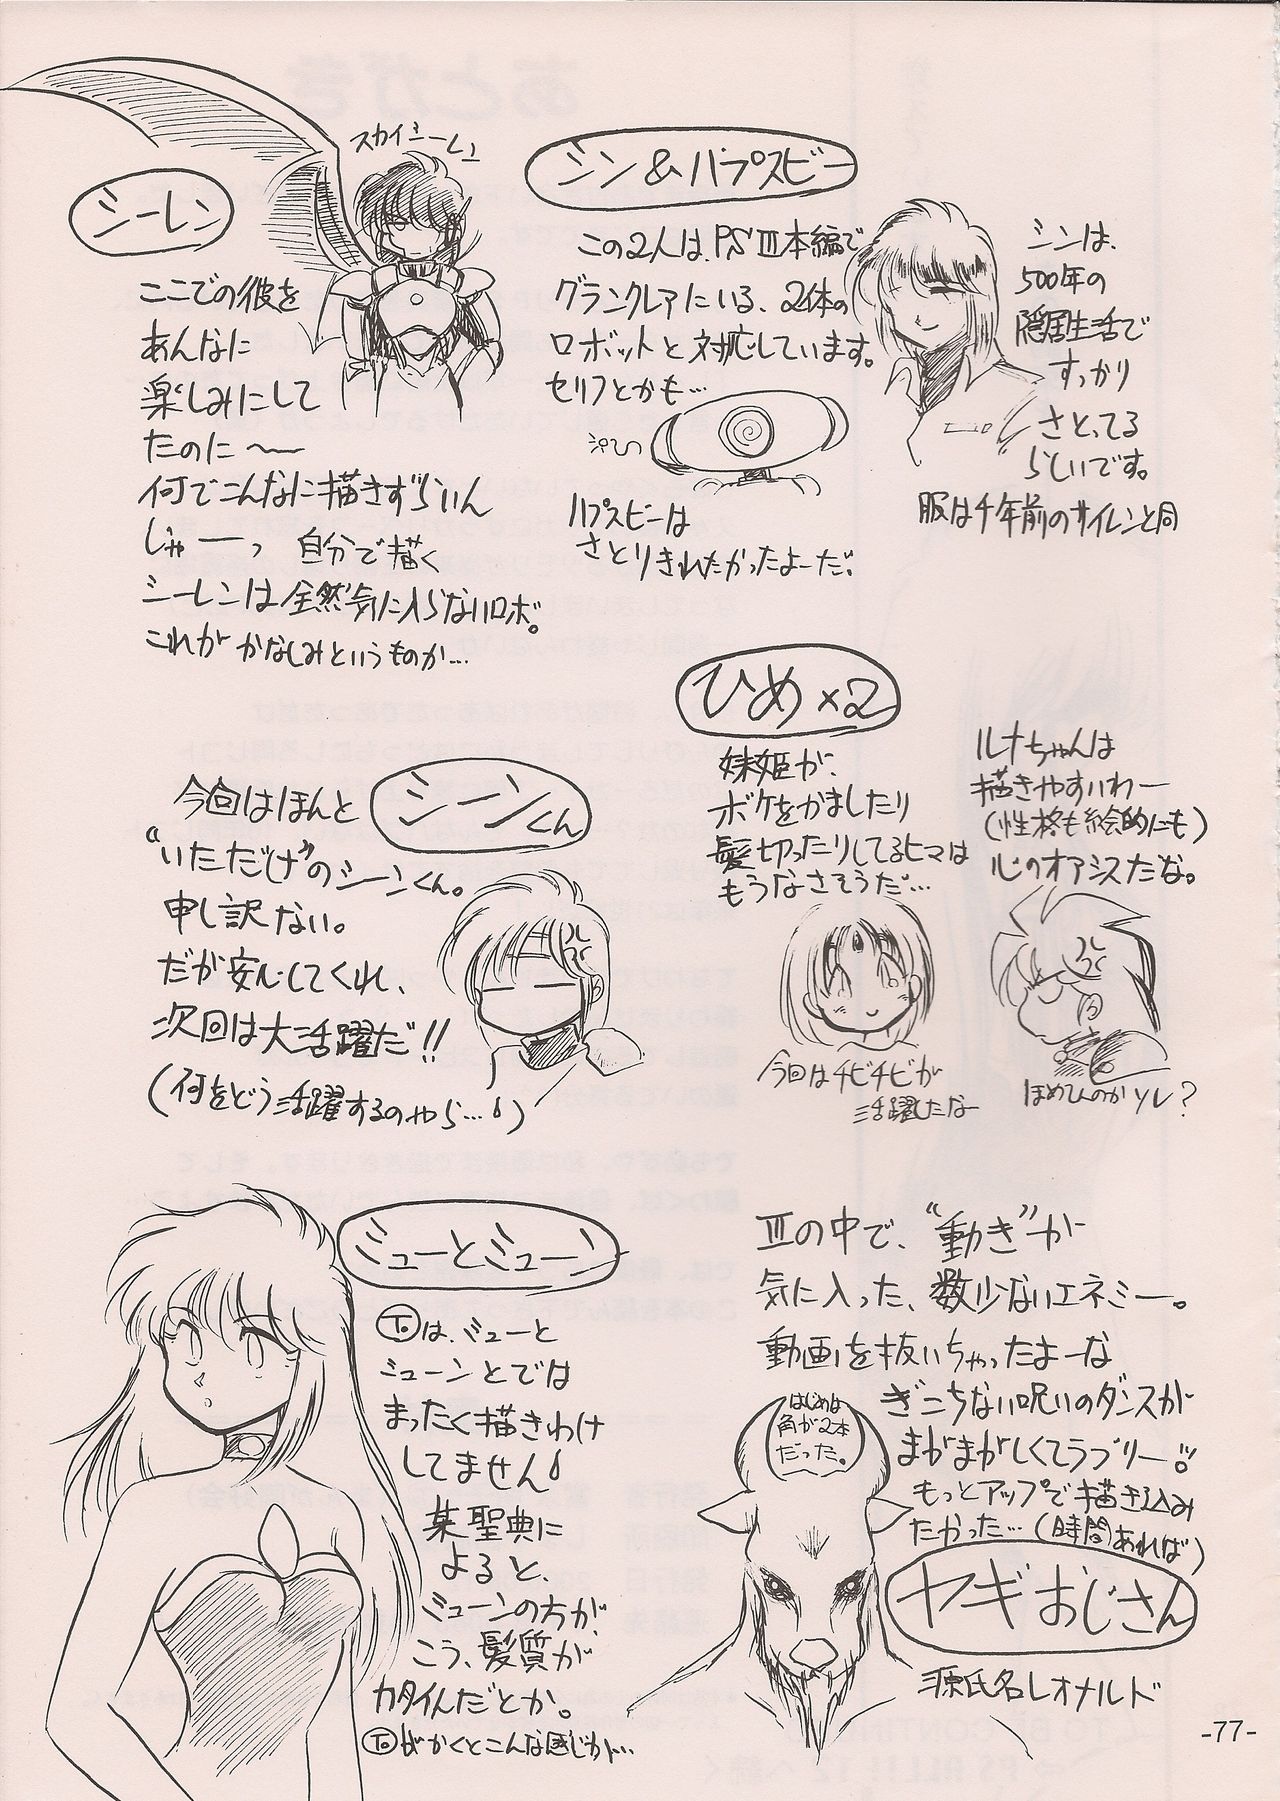 スカイシーレン
シーレン
ここでの彼を
あんなに
楽しみにして
たのに〜
何でこんなに描きずらいん
じゃーっ 自分で描く
シーレンは全然気に入らないロボ。
これがかなしみというものか…
シン&ハプスビー
この2人は、PSⅢ本編で
グランクレアにいる、2体の
ロボットと対応しています。
セリフとかも…
ハプスビーは
さとりきれたかったよーだ。
シンは、
500年の
隠居生活で
すっかり
さとってる
らしいです。
服は千年前のサイレンと同
ひめ×2
妹姫が、
ボケをかましたり
髪切ったりしてるヒマは
もうなさそうだ…
今回はチビチビが
活躍したなー
ルナちゃんは
描きやすいわー
(性格も絵的にも)
心のオアシスだな。
ほめてんのかソレ?
シーンくん
今回はほんと
“いただけ”のシーンくん。
申し訳ない。
だが安心してくれ、
次回は大活躍だ!!
(何をどう活躍するのやら…)
ミューとミューン
Toは、ミューと
ミューンとでは
まったく描きわけ
してません
某聖典に
よると、
ミューンの方が、
こう、髪質が
カタイんだとか。
Toがかくとこんな感じか…
Ⅲの中で、“動き”が
気に入った、数少ないエネミー。
動画を抜いちゃったよーな
ぎこちない呪いのダンスが
まがまがしくてラブリー
もっとアップで描き込み
たかった…(時間あれば)
はじめは
角が2本
だった。
ヤギおじさん
源氏名レオナルド
-77-